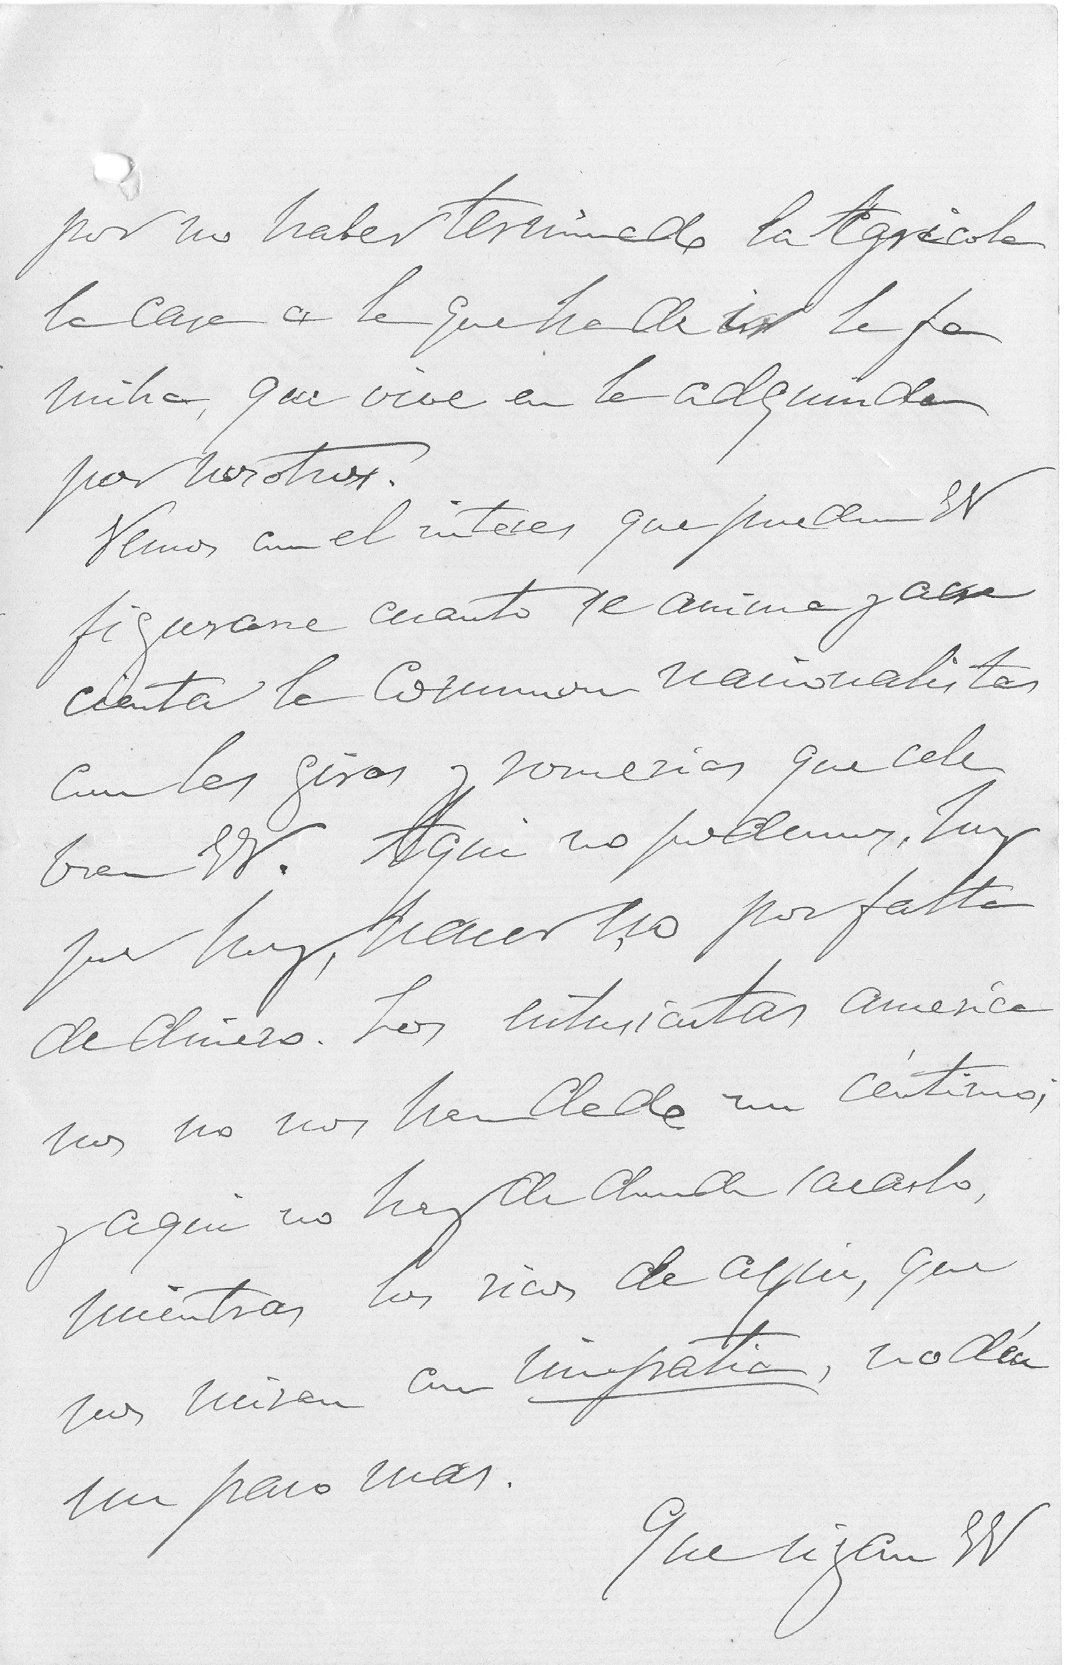 por no haber terminado la Agricola
la casa a la que ha de ir la fa
milia, que vive en la adquirida
por nosotros.
Vemos con el interes que pueden VV
figurarse cuanto se anima y acre
cienta la Comunion nacionalista
con las giras y romerias que cele
bran VV. Aqui no podemos, hoy
por hoy, hacerlo por falta
de dinero. Los entusiastas america
nos no nos han dado un céntimo;
y aqui no hay de donde sacarlo,
mientras los ricos de aqui, que
nos miran con simpatia, no dén
un paso mas.
Que sigan VV